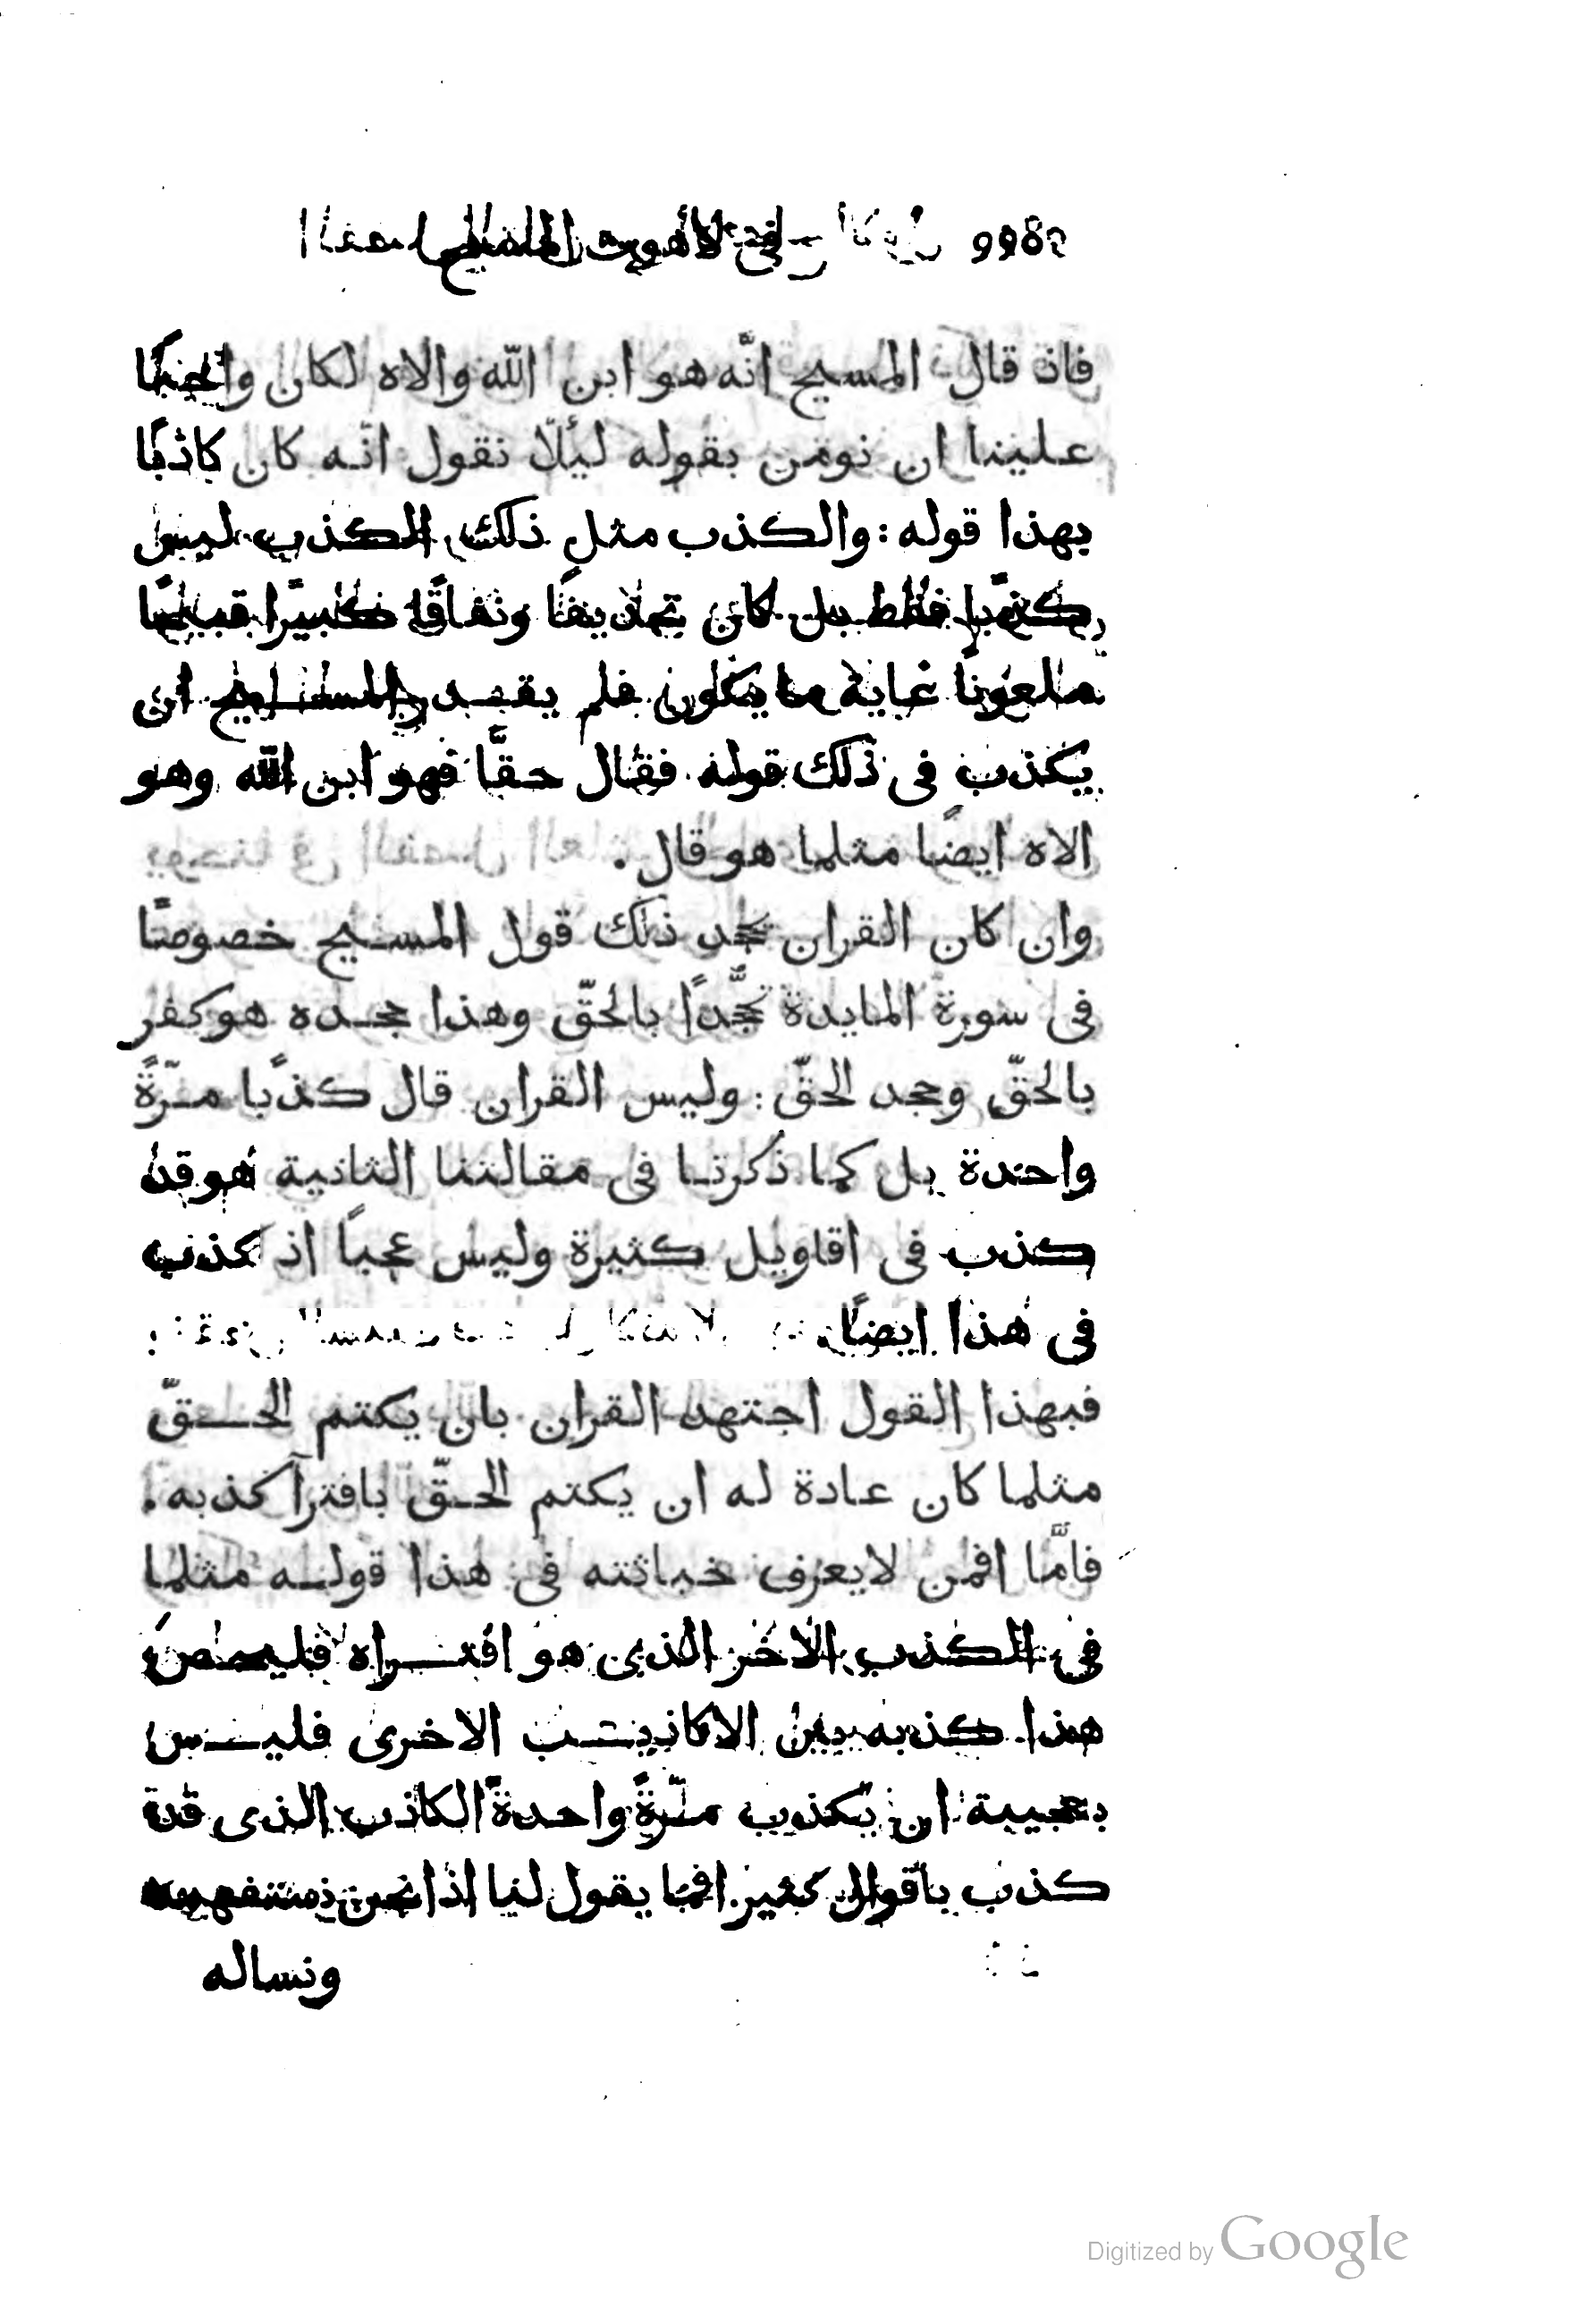 فى لاهوت المسيح
فاذ قال المسيح انّه هو ابن اللّه والاه لكان واجبًا
علينا ان نومن بقوله ليُلّا نقول انّه كان كاذبًا
بهذا قوله: والكذب مثل ذلك الكذب ليس
كذبًا فقط بل كان تجديفًا ونفاقًا كبيرًا قبيحًا
ملعونًا غاية ما يكون فلم يقدر المسيح ان
يكذب فى ذلك قوله فقال حقًّا فهو ابن اللّه وهو
الاه ايضًا مثلما هو قال.
وان كان القران يجحد ذلك قول المسيح خصوصًا
فى سورة المايدة بالحقّ وهذا جحده هو كفر
بالحقّ وجحد الحقّ: وليس القران قال كذبًا مرّةً
واحدة بل كما ذكرنا فى مقالتنا الثانية هو قد
كذب فى اقاويل كثيرة وليس عجبًا اذ كذب
فى هذا ايضًا.
فبهذا القول اجتهد القران بان يكتم الحقّ
مثلما كان عادة له ان يكتم الحقّ بافترآ كذبه.
فامّا افمن لا يعرف خباثته فى هذا قوله مثلما
فى الكذب الاخر الذى هو افتراه
هذا كذبه بين الاكاذيب الاخرى فليس
بعجيبة ان يكذب مرّةً واحدةً الكاذب الذى قد
كذب باقوال كثير افما يقول لنا اذا نحن نستفهمه
ونساله
Digitized by Google